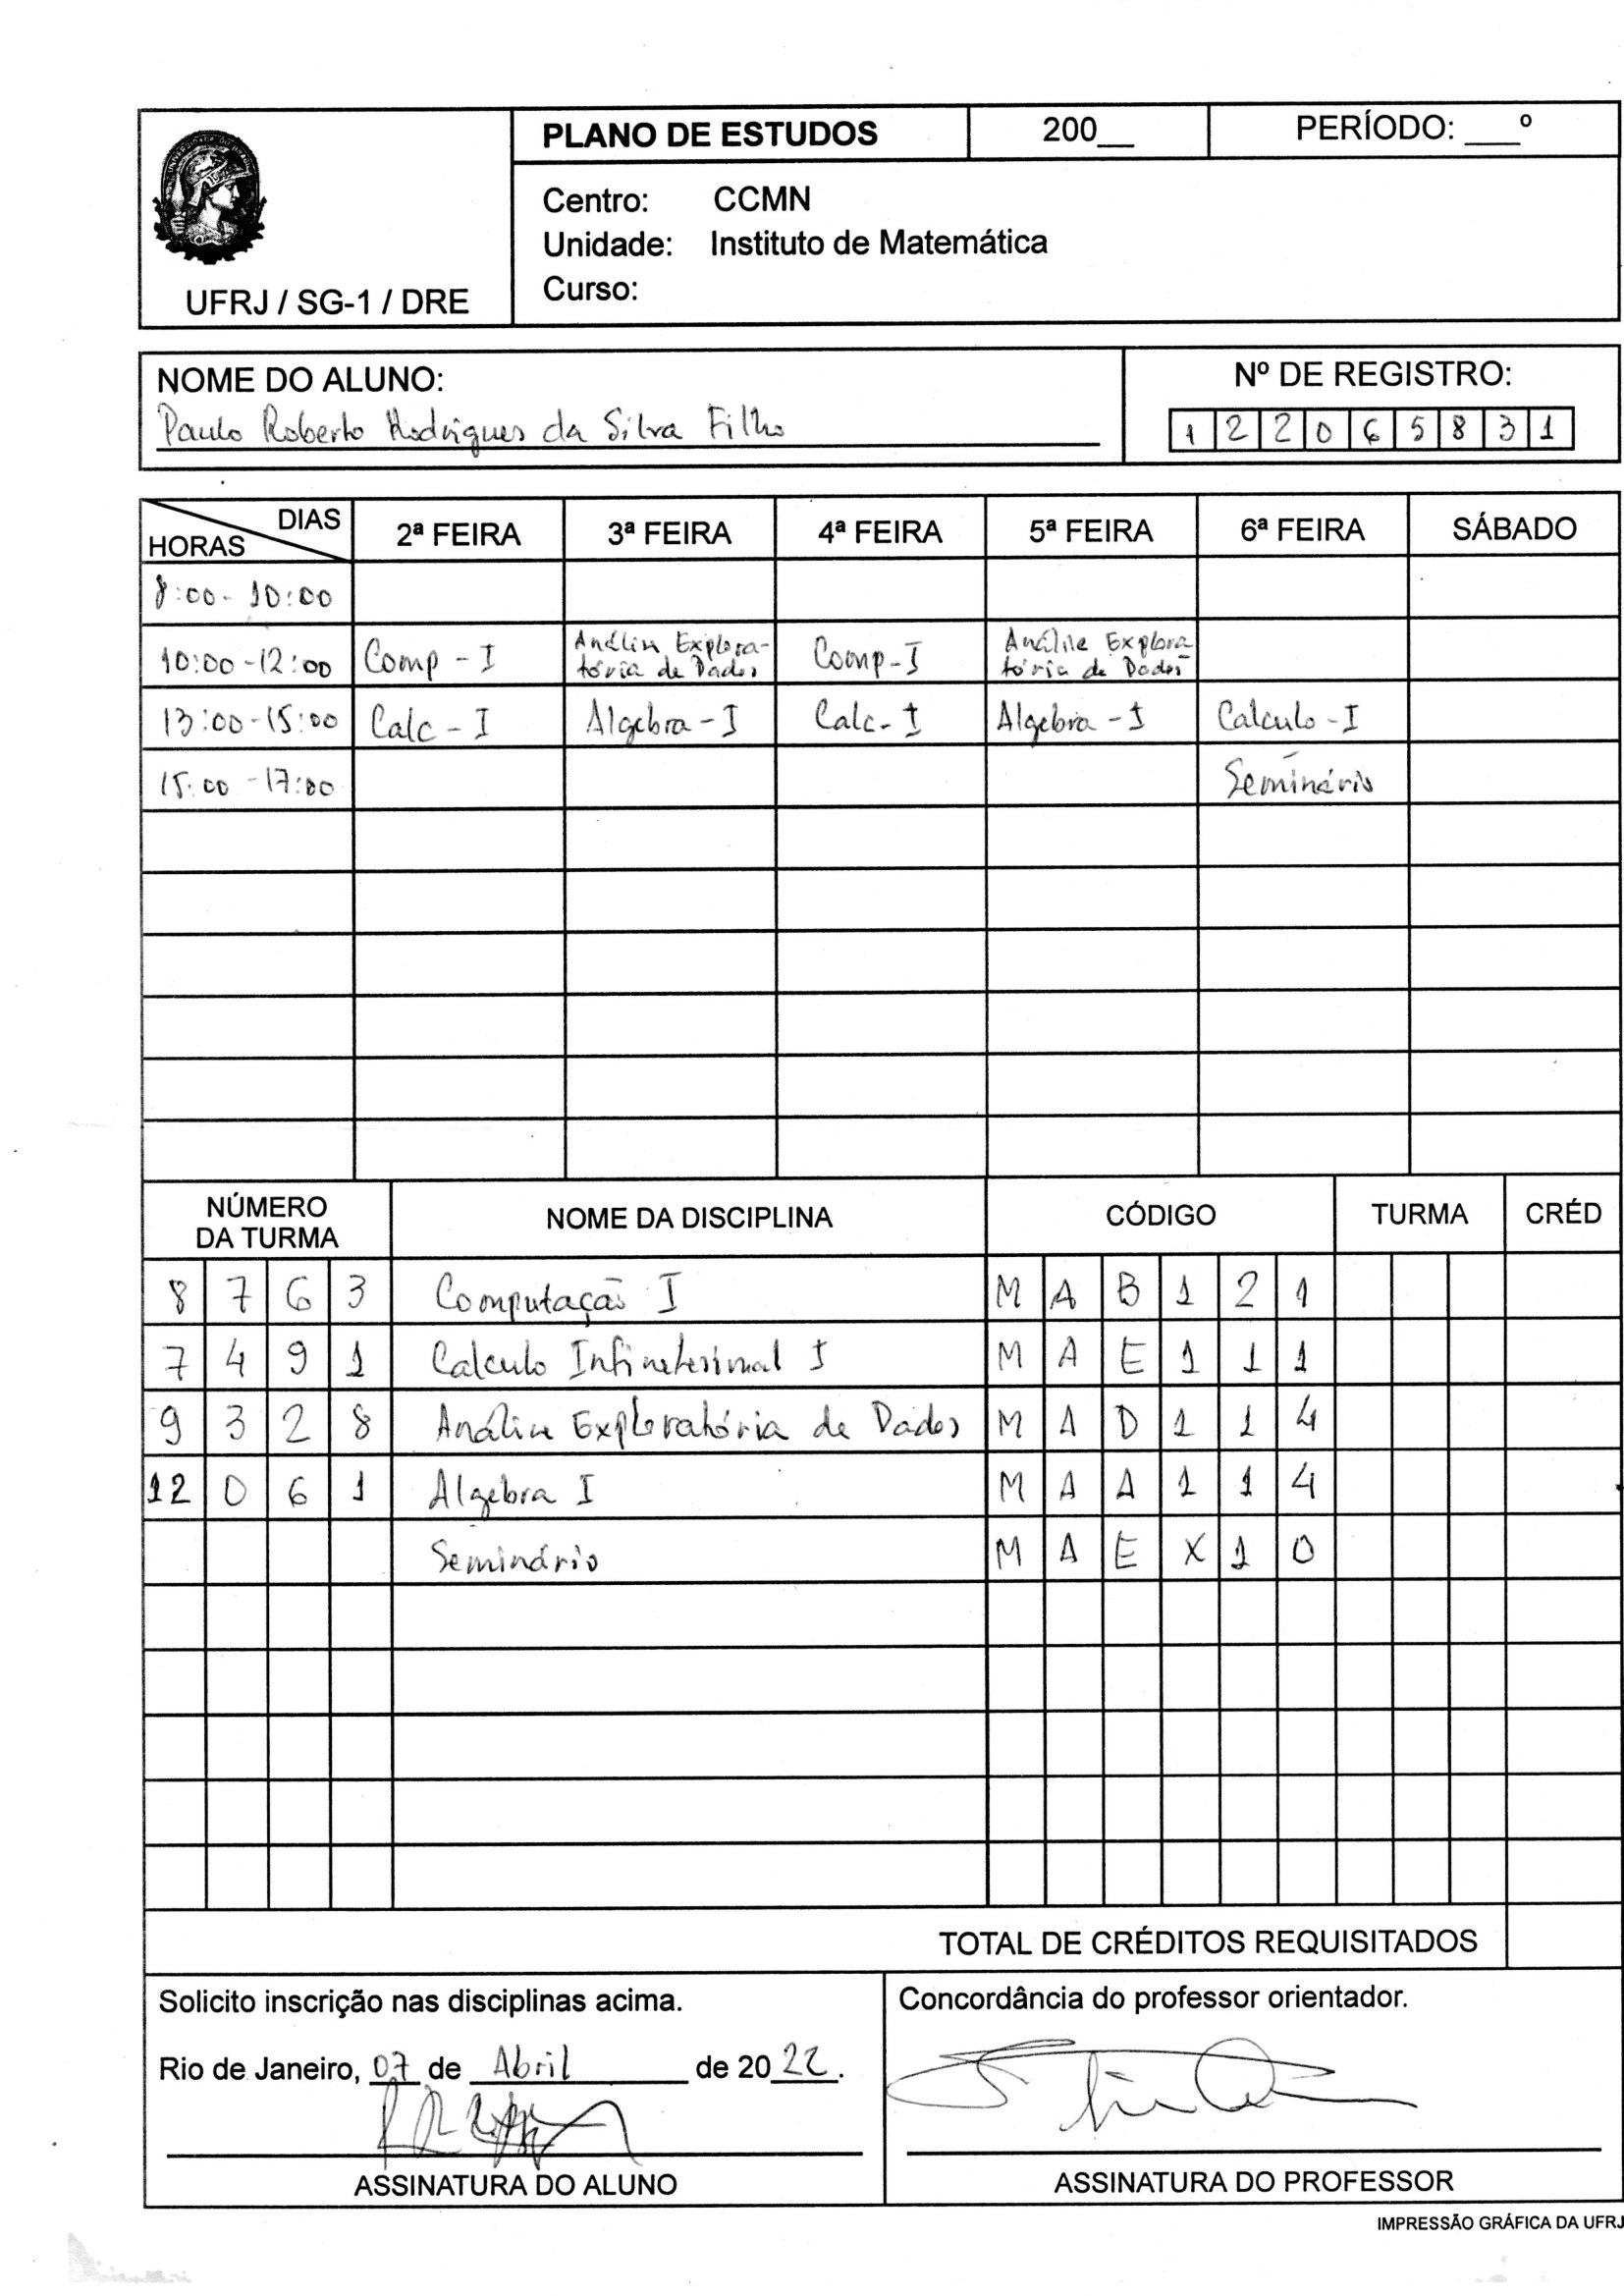 PLANO DE ESTUDOS 200__ PERÍODO: ___º
Centro: CCMN
Unidade: Instituto de Matemática
Curso:
UFRJ / SG-1 / DRE
NOME DO ALUNO: Nº DE REGISTRO:
Paulo Roberto Rodrigues da Silva Filho 1 2 2 0 6 5 8 3 1
DIAS
HORAS 2ª FEIRA 3ª FEIRA 4ª FEIRA 5ª FEIRA 6ª FEIRA SÁBADO
8:00 - 10:00
10:00 - 12:00 Comp - I Análise Explora-tória de Dados Comp - I Análise Explora tória de Dados
13:00 - 15:00 Calc - I Algebra - I Calc - I Algebra - I Calculo - I
15:00 - 17:00 Seminário
NÚMERO DA TURMA NOME DA DISCIPLINA CÓDIGO TURMA CRÉD
8 7 6 3 Computação I M A B 1 2 1
7 4 9 1 Calculo Infinetesimal I M A E 1 1 1
9 3 2 8 Análise Exploratória de Dados M A D 1 1 4
12 0 6 1 Algebra I M A A 1 1 4
Seminário M A E X 1 0
TOTAL DE CRÉDITOS REQUISITADOS
Solicito inscrição nas disciplinas acima. Concordância do professor orientador.
Rio de Janeiro, 07 de Abril de 2022.
ASSINATURA DO ALUNO ASSINATURA DO PROFESSOR
IMPRESSÃO GRÁFICA DA UFRJ